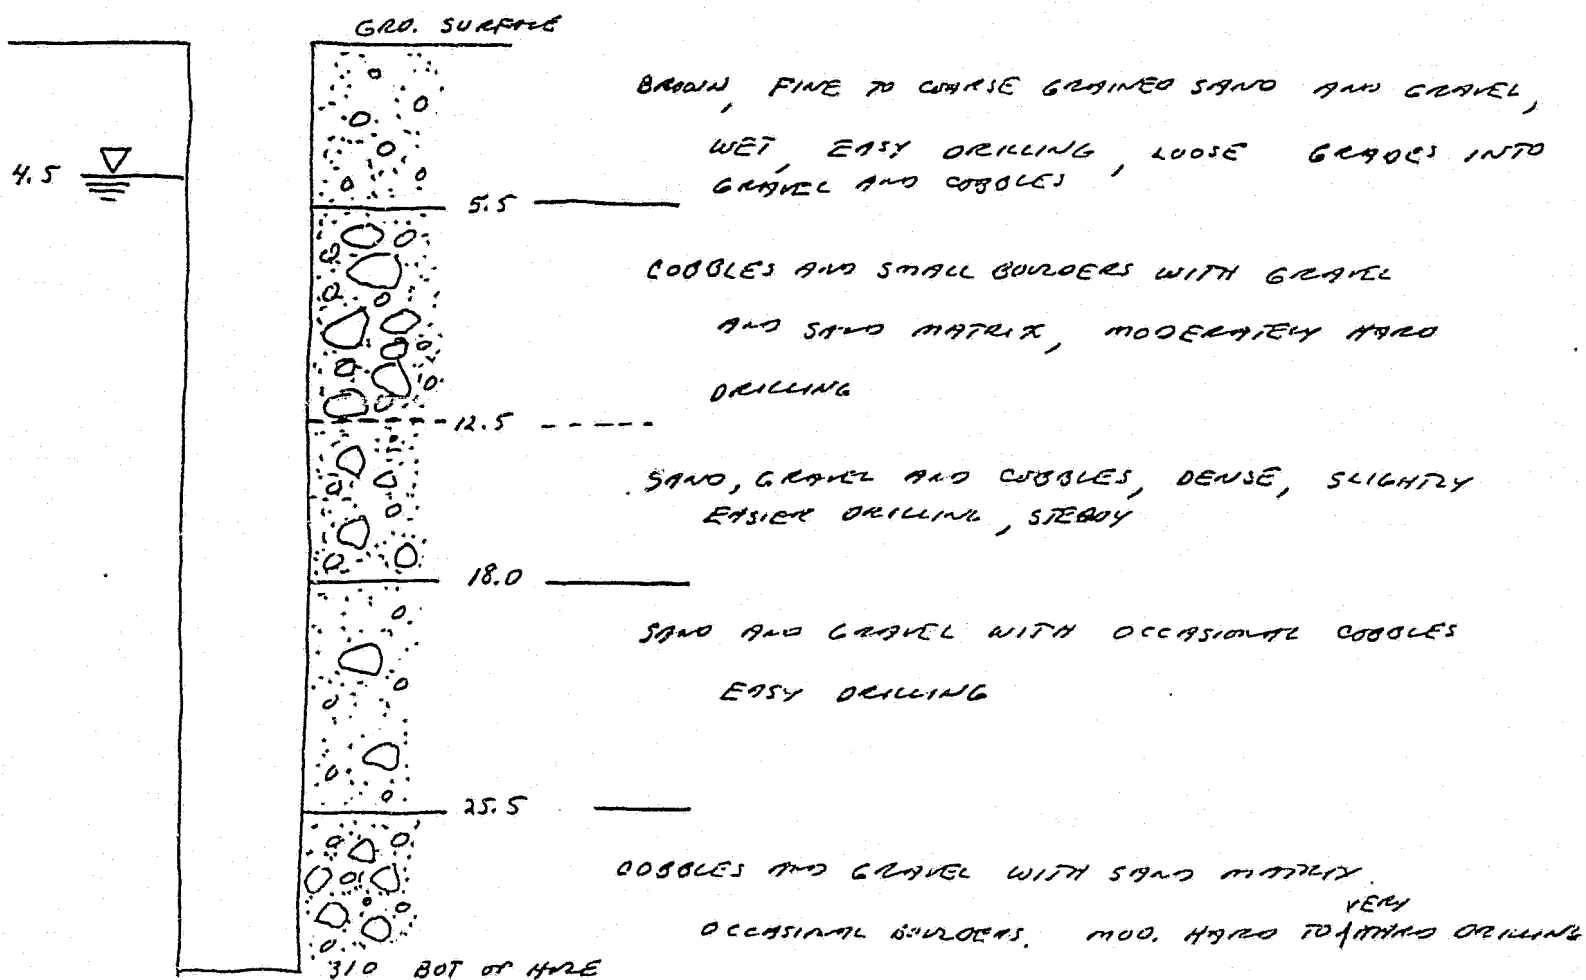 GRD. SURFACE
BROWN, FINE TO COARSE GRAINED SAND AND GRAVEL,
WET, EASY DRILLING, LOOSE GRADES INTO
GRAVEL AND COBBLES
4.5
5.5
COBBLES AND SMALL BOULDERS WITH GRAVEL
AND SAND MATRIX, MODERATELY HARD
DRILLING
12.5
SAND, GRAVEL AND COBBLES, DENSE, SLIGHTLY
EASIER DRILLING, STEADY
18.0
SAND AND GRAVEL WITH OCCASIONAL COBBLES
EASY DRILLING
25.5
COBBLES AND GRAVEL WITH SAND MATRIX.
OCCASIONAL BOULDERS. MOD. HARD TO VERY HARD DRILLING
31.0 BOT OF HOLE